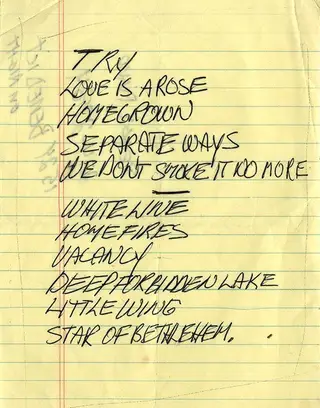 TRY
LOVE IS A ROSE
HOMEGROWN
SEPARATE WAYS
WE DONT SMOKE IT NO MORE
WHITE LINE
HOMEFIRES
VACANCY
DEEP FORBIDDEN LAKE
LITTLE WING
STAR OF BETHLEHEM.